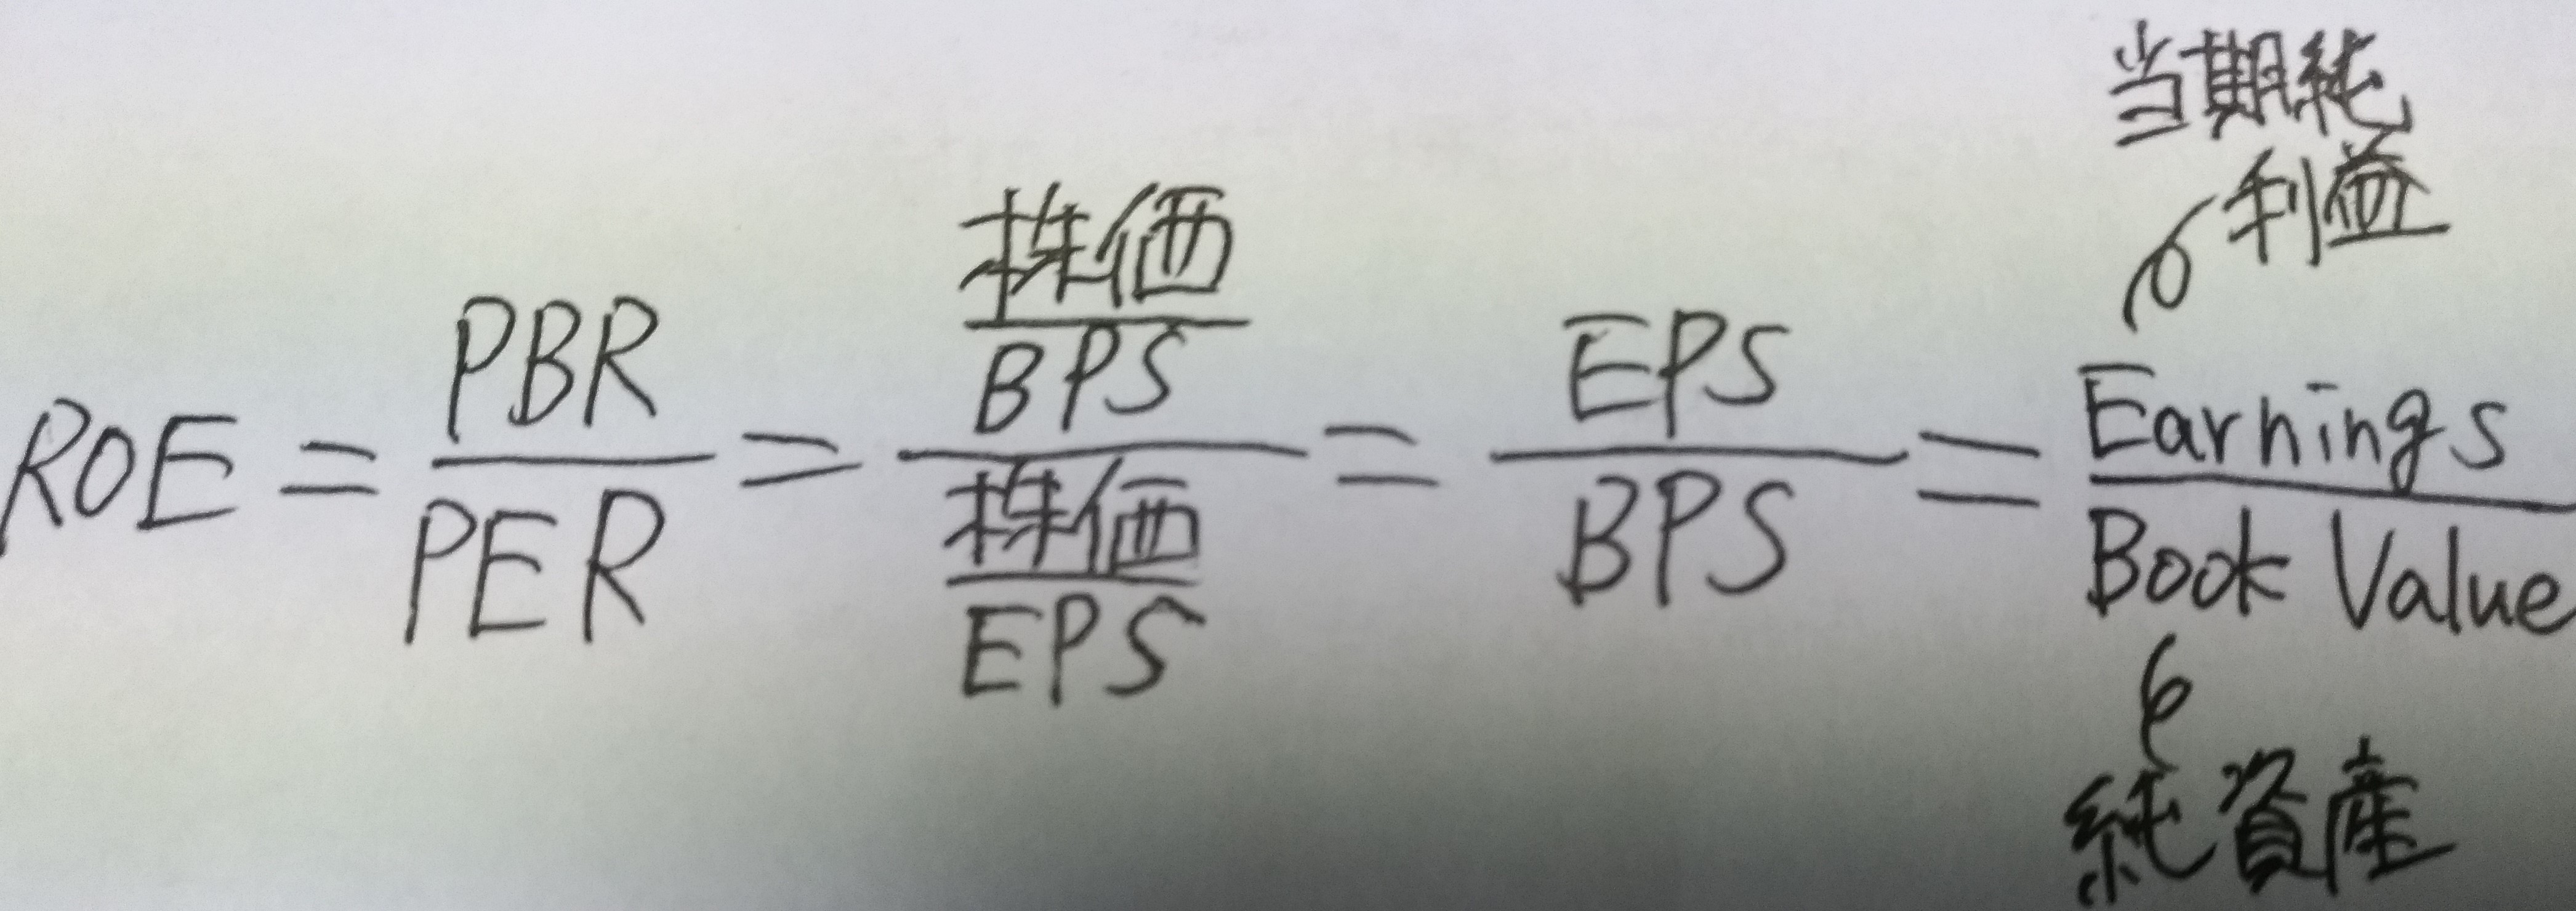 当期純
利益
ROE = PBR / PER = 株価 / BPS / 株価 / EPS = EPS / BPS = Earnings / Book Value
純資産